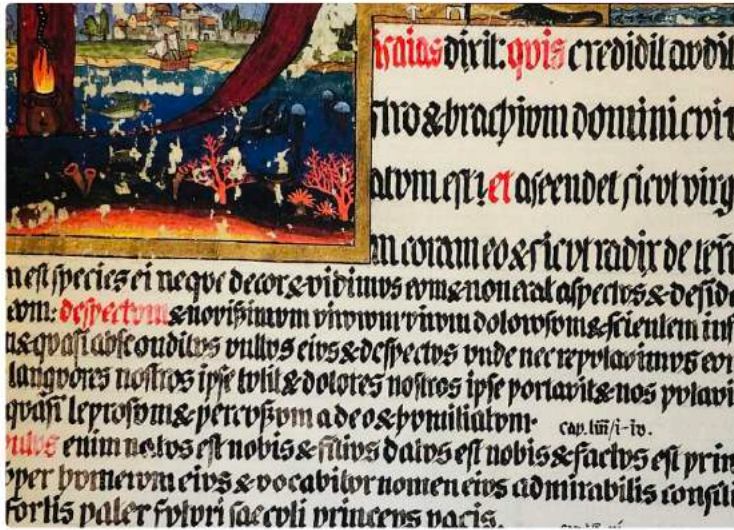 isaias dixit: quis credidit audit
stro & brachium domini cui r
atum est? et ascendet sicut virg
m coram eo & sicut radix de terr
n est species ei neque decor & vidimus eum & non erat aspectus & deside
eum: despectum & novissimum virorum virum dolorosum & scientem inf
n & quasi absconditus vultus eius & despectus unde nec reputavimus eu
languores nostros ipse tulit & dolores nostros ipse portavit & nos putavi
quasi leprosum & percussum a deo & humiliatum.
cap. liii/i-iv.
vulus enim natus est nobis & filius datus est nobis & factus est prin
uper humerum eius & vocabitur nomen eius admirabilis consili
fortis pater futuri saeculi princeps pacis.